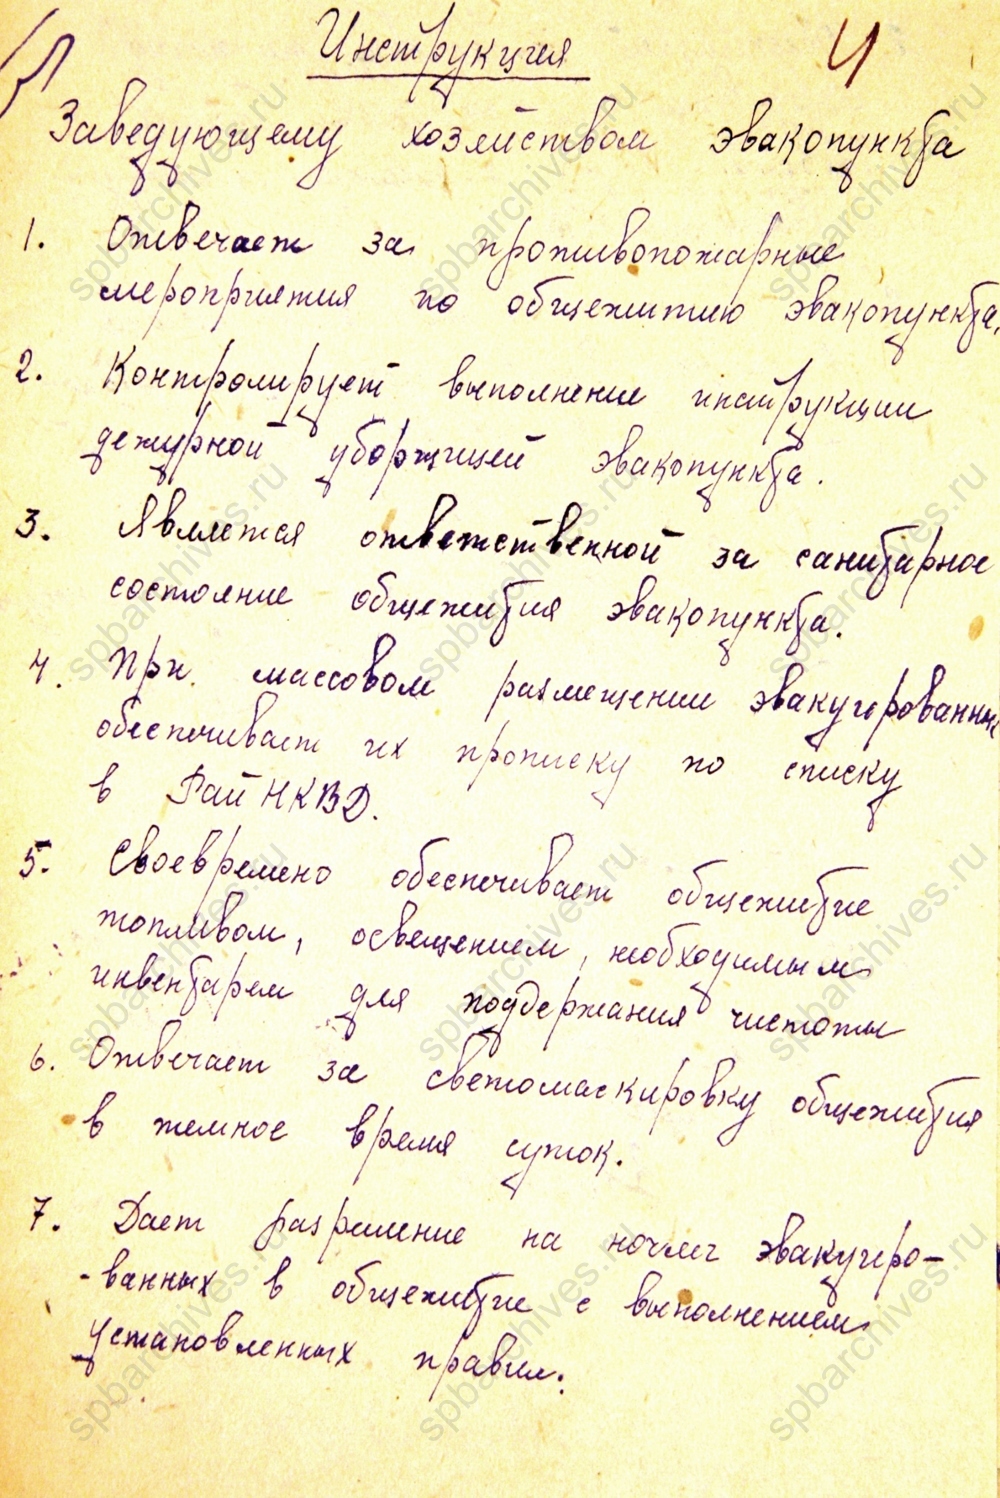 Инструкция 4
Заведующему хозяйством эвакопункта
1. Отвечает за противопожарные
мероприятия по общежитию эвакопункта.
2. Контролирует выполнение инструкции
дежурной уборщицей эвакопункта.
3. Является ответственной за санитарное
состояние общежития эвакопункта.
4. При массовом размещении эвакуированных
обеспечивает их прописку по списку
в РайНКВД.
5. Своевремено обеспечивает общежитие
топливом, освещением, необходимым
инвентарем для поддержания чистоты
6. Отвечает за светомаскировку общежития
в темное время суток.
7. Дает разрешение на ночлег эвакуиро-
-ванных в общежитие с выполнением
установленных правил.
spbarchives.ru